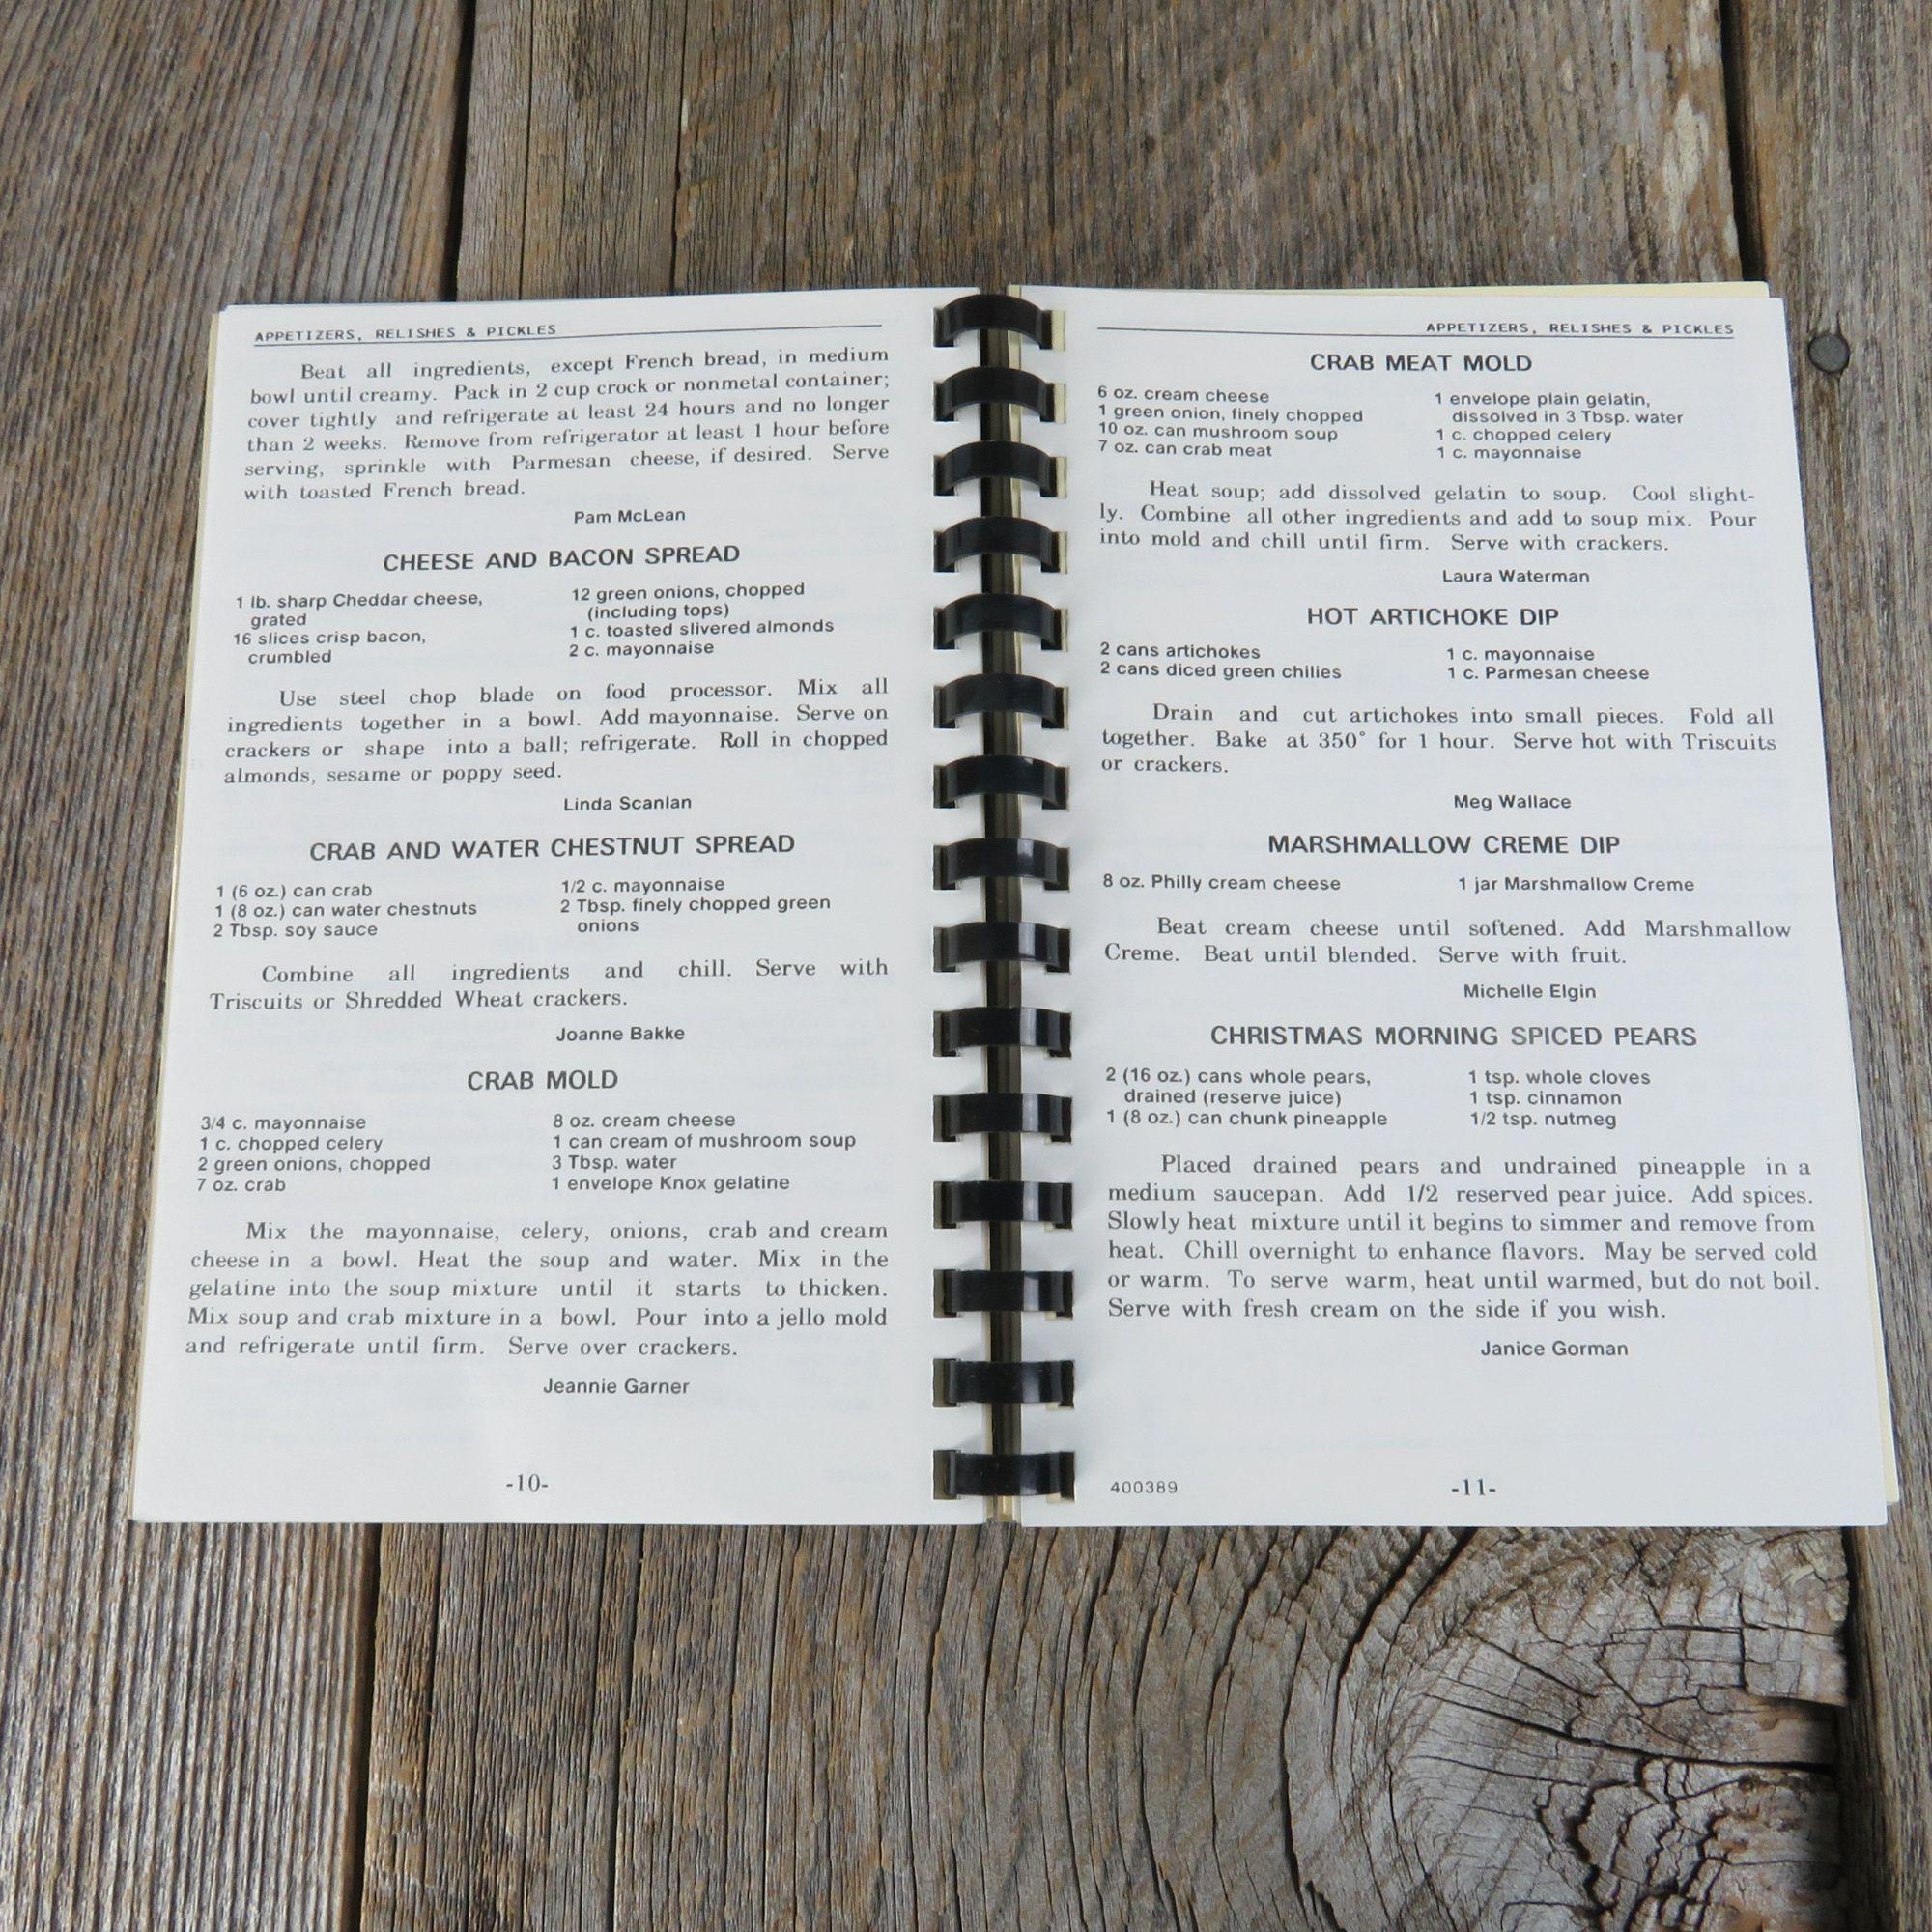 APPETIZERS, RELISHES & PICKLES
Beat all ingredients, except French bread, in medium
bowl until creamy. Pack in 2 cup crock or nonmetal container;
cover tightly and refrigerate at least 24 hours and no longer
than 2 weeks. Remove from refrigerator at least 1 hour before
serving, sprinkle with Parmesan cheese, if desired. Serve
with toasted French bread.
Pam McLean
CHEESE AND BACON SPREAD
1 lb. sharp Cheddar cheese,
grated
16 slices crisp bacon,
crumbled
12 green onions, chopped
(including tops)
1 c. toasted slivered almonds
2 c. mayonnaise
Use steel chop blade on food processor. Mix all
ingredients together in a bowl. Add mayonnaise. Serve on
crackers or shape into a ball; refrigerate. Roll in chopped
almonds, sesame or poppy seed.
Linda Scanlan
CRAB AND WATER CHESTNUT SPREAD
1 (6 oz.) can crab
1 (8 oz.) can water chestnuts
2 Tbsp. soy sauce
1/2 c. mayonnaise
2 Tbsp. finely chopped green
onions
Combine all ingredients and chill. Serve with
Triscuits or Shredded Wheat crackers.
Joanne Bakke
CRAB MOLD
3/4 c. mayonnaise
1 c. chopped celery
2 green onions, chopped
7 oz. crab
8 oz. cream cheese
1 can cream of mushroom soup
3 Tbsp. water
1 envelope Knox gelatine
Mix the mayonnaise, celery, onions, crab and cream
cheese in a bowl. Heat the soup and water. Mix in the
gelatine into the soup mixture until it starts to thicken.
Mix soup and crab mixture in a bowl. Pour into a jello mold
and refrigerate until firm. Serve over crackers.
Jeannie Garner
-10-
APPETIZERS, RELISHES & PICKLES
CRAB MEAT MOLD
6 oz. cream cheese
1 green onion, finely chopped
10 oz. can mushroom soup
7 oz. can crab meat
1 envelope plain gelatin,
dissolved in 3 Tbsp. water
1 c. chopped celery
1 c. mayonnaise
Heat soup; add dissolved gelatin to soup. Cool slight-
ly. Combine all other ingredients and add to soup mix. Pour
into mold and chill until firm. Serve with crackers.
Laura Waterman
HOT ARTICHOKE DIP
2 cans artichokes
2 cans diced green chilies
1 c. mayonnaise
1 c. Parmesan cheese
Drain and cut artichokes into small pieces. Fold all
together. Bake at 350° for 1 hour. Serve hot with Triscuits
or crackers.
Meg Wallace
MARSHMALLOW CREME DIP
8 oz. Philly cream cheese
1 jar Marshmallow Creme
Beat cream cheese until softened. Add Marshmallow
Creme. Beat until blended. Serve with fruit.
Michelle Elgin
CHRISTMAS MORNING SPICED PEARS
2 (16 oz.) cans whole pears,
drained (reserve juice)
1 (8 oz.) can chunk pineapple
1 tsp. whole cloves
1 tsp. cinnamon
1/2 tsp. nutmeg
Placed drained pears and undrained pineapple in a
medium saucepan. Add 1/2 reserved pear juice. Add spices.
Slowly heat mixture until it begins to simmer and remove from
heat. Chill overnight to enhance flavors. May be served cold
or warm. To serve warm, heat until warmed, but do not boil.
Serve with fresh cream on the side if you wish.
Janice Gorman
400389
-11-